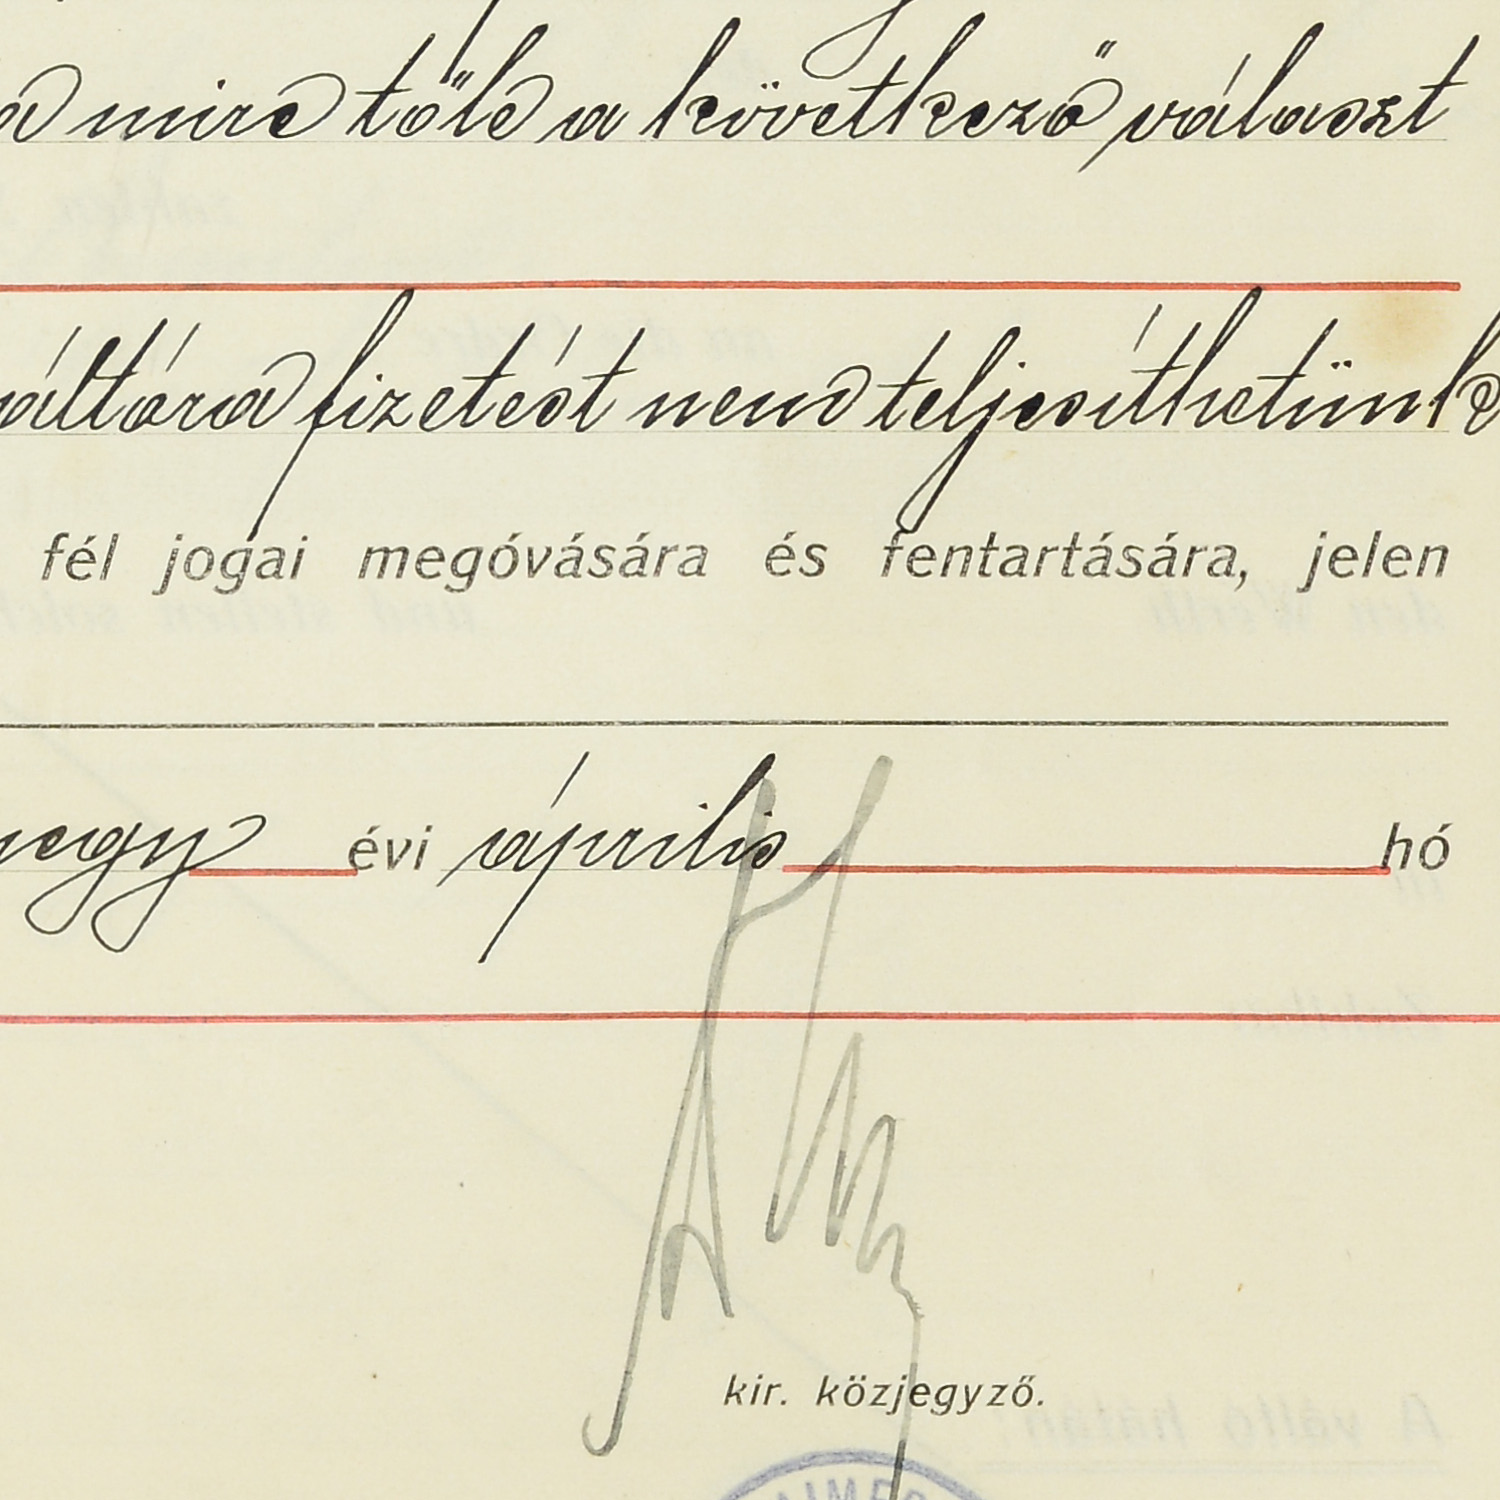 mire tőle a következő választ
váltóra fizetést nem teljesíthetünk
fél jogai megóvására és fentartására, jelen
négy évi április hó
kir. közjegyző.